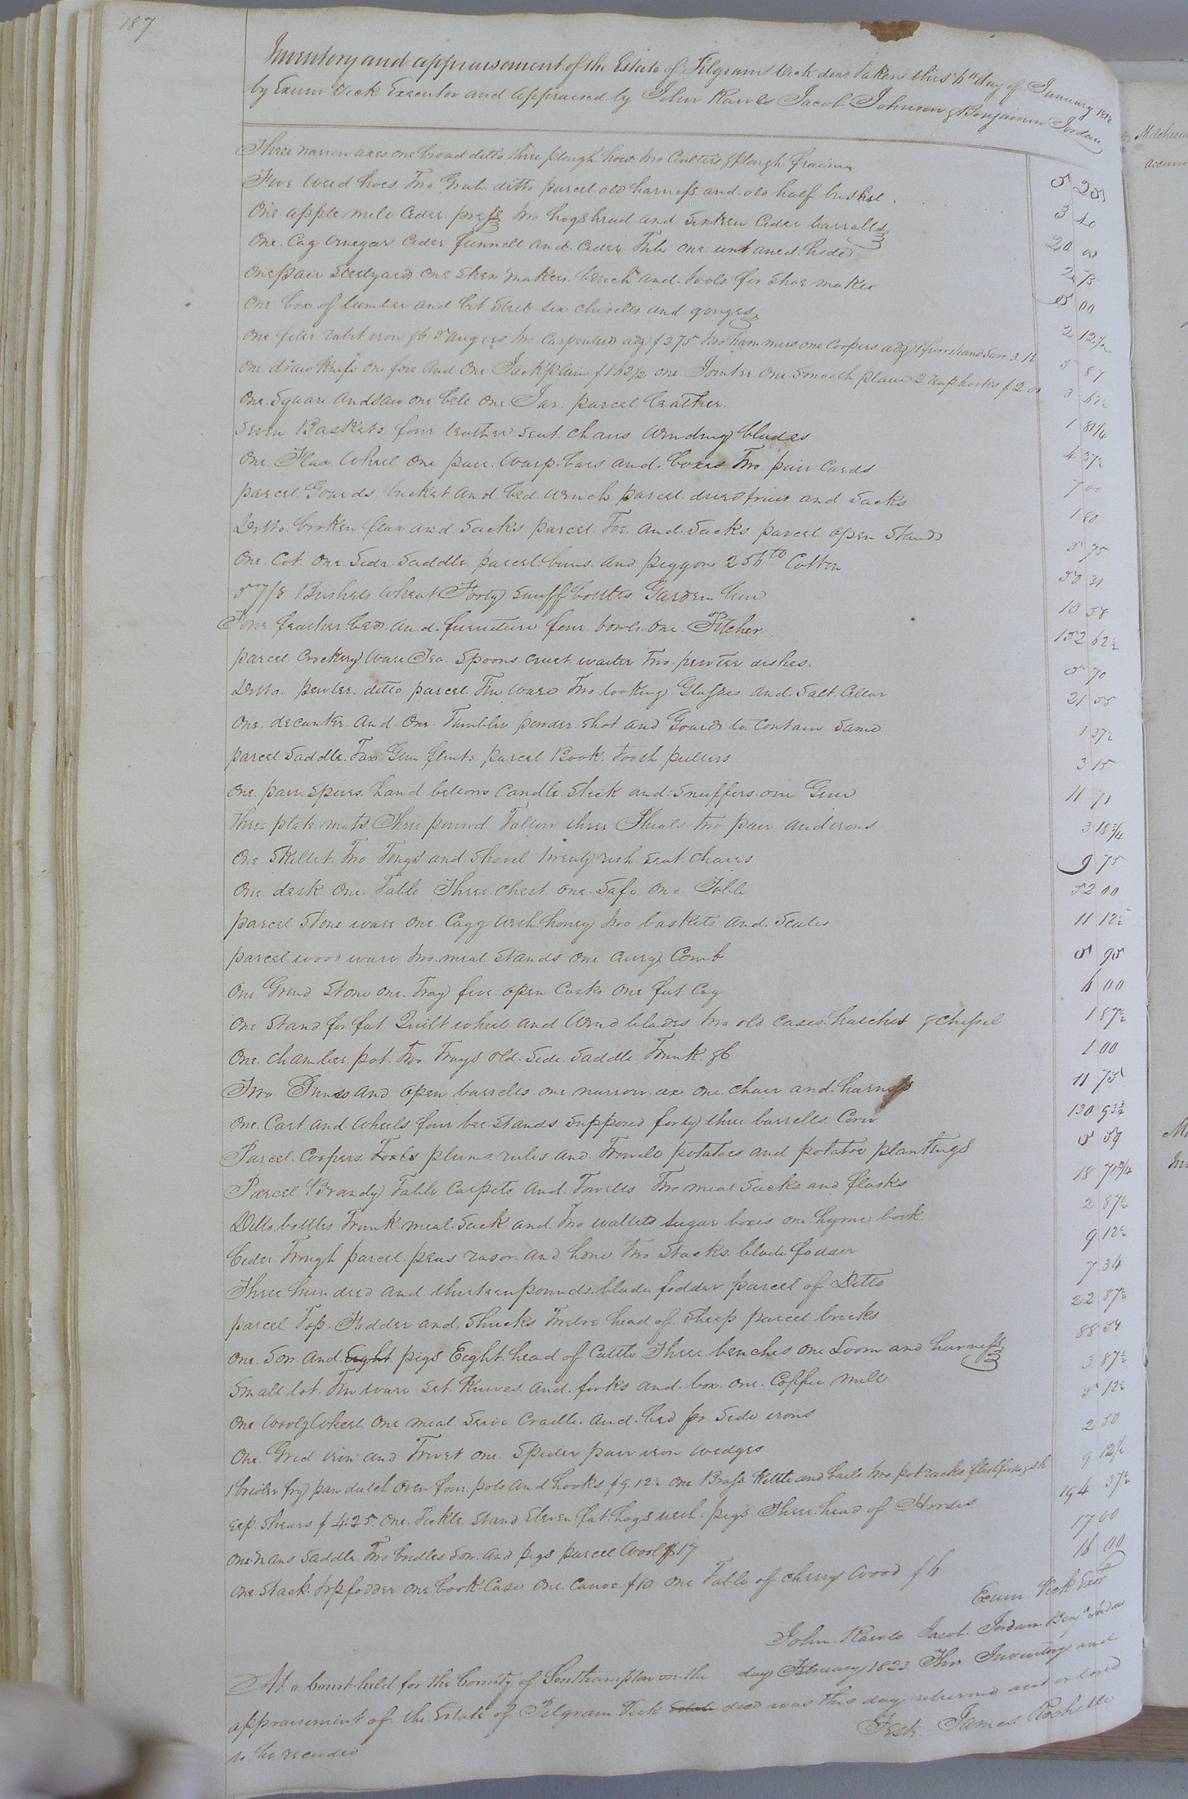 187
Inventory and appraisement of the Estate of Pilgram Vick decd taken this 4th day of January
by Exum Vick Executor and appraised by John Rawls Jacob Johnson & Benjamin Jordan
Three narrow axes one broad ditto three plough hoes two Coulters & plough 5 25
Five weed hoes Two Grub ditto parcel old harness and old half bushel. 3 40
One apple mill Ceder press two hogshead and Sixteen Ceder barrells 20 00
One Cag vinegar Ceder funnell and Ceder Tub one untaned hide 2 75
One pair Steelyards one Shoe makers bench and tools for Shoe maker 5 00
One box of lumber and Six chisells and gouges 2 12½
One iron $6 5 augers two Carpenters adz $2.75 two hammers one Coopers adz hand Saw 5 87
One draw knife one fore and One Jack plain $1 62½ one Jointer One Smooth plane 2 3 62½
One Square and Saw one bell One Jar parcel leather 1 81¼
Seven Baskets four leather Seat chairs Winding blades 4 37½
One Flax Wheel One pair Warp bars and boxes Two pair Cards 7 00
parcel Gourds bucket and bed wench parcel dried fruit and Sacks 1 80
Ditto broken flax and Sacks parcel Tow and Sacks parcel open Stands 5 75
One Cot One Side Saddle parcel and piggons Cotton 50 31
5 7/8 Bushels wheat Forty Snuff bottles Garden hoe 10 58
feather beds and furniture four bowls One Pitcher 152 62½
parcel Crockery Ware Tea Spoons cruet waiter Two pewter dishes. 5 70
Ditto pewter ditto parcel Tin Ware Two looking Glasses and Salt Cellar 21 55
One decanter and One Tumbler powder Shot and Gourds to Contain Same 1 37½
parcel Saddle Gun flints parcel Book Tooth pullers 3 15
One pair Spurs hand bellows Candle Stick and Snuffers one Gun 11 71
Three plate mats Three pound Tallow three Two pair andirons 3 18¾
One Skillet Two Tongs and Shovel twenty rush Seat Chairs 9 75
One desk One Table Three Chest one Safe One Table 52 00
parcel Stone ware One Cagg with honey two baskets and Scales 11 12½
parcel wood ware two meal Stands One curry Comb 5 95
One Grind Stone One Tray five open Casks One fat Cag 6 00
One Stand for fat Quilt wheel and Wind blades two old Cases hatchet & Chissel 1 87½
One Chamber pot Two Trays old Side Saddle Trunk &c 1 00
Two and open barrells one narrow ax one Chair and harness 11 75
One Cart and Wheels four bee Stands Supposed forty three barrells Corn 130 93½
Parcel Coopers Tools plumb rules and Trowels potatoes and potatoe plantings 5 59
Parcel Brandy Table Carpets and Towells Two meal Sacks and flasks 18 71¾
Ditto bottles Trunk meal Sack and Two wallets Sugar boxes one hymn book 2 87½
Ceder Trough parcel peas razor and hone Two Stacks blade fodder 9 12½
Three hundred and thirteen pounds blade fodder parcel of Ditto 7 34
parcel Top Fodder and Shucks Twelve head of Sheep parcel bricks 22 87½
One Sow and Eight pigs Eight head of Cattle Three benches One Loom and harness 88 54
Small lot Tin ware Set Knives and forks and box One Coffee mill 3 87½
One Wooly Wheel One meal Seive Cradle and bed pr Side irons 5 12½
One Grid iron and Trivet one Spider pair iron wedges 2 50
1 fry pan dutch oven four pots and hooks $9.12½ one Brass Kettle and bails two pot racks 9 12½
Shears $4.25 One Stand Eleven fat hogs pigs Three head of Horses 194 37½
One mans Saddle Two bridles Sow and pigs parcel Wool $17 17 00
One Stack top fodder one book Case One Canoe $10 one Table of cherry wood $6 16 00
Exum Vick Exor
John Rawls Jacob Jordan
At a Court held for the County of Southampton on the day February 1823 This Inventory and
appraisement of the Estate of Pilgram Vick decd was this day returned and ordered
to be recorded
Teste James Rochelle